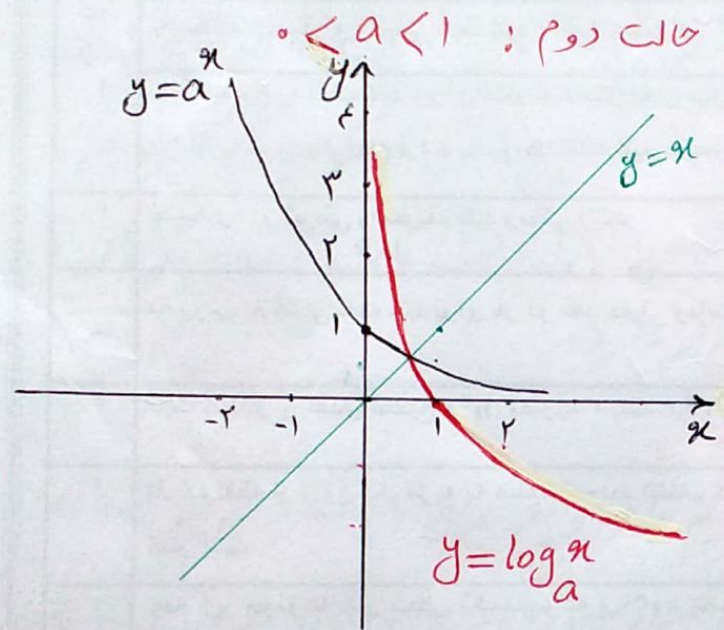 حالت دوم : ۰ < a < ۱
y = aˣ
y
۴
۳
y = x
۲
۱
-۲ -۱ ۱ ۲
x
y = logₐ x